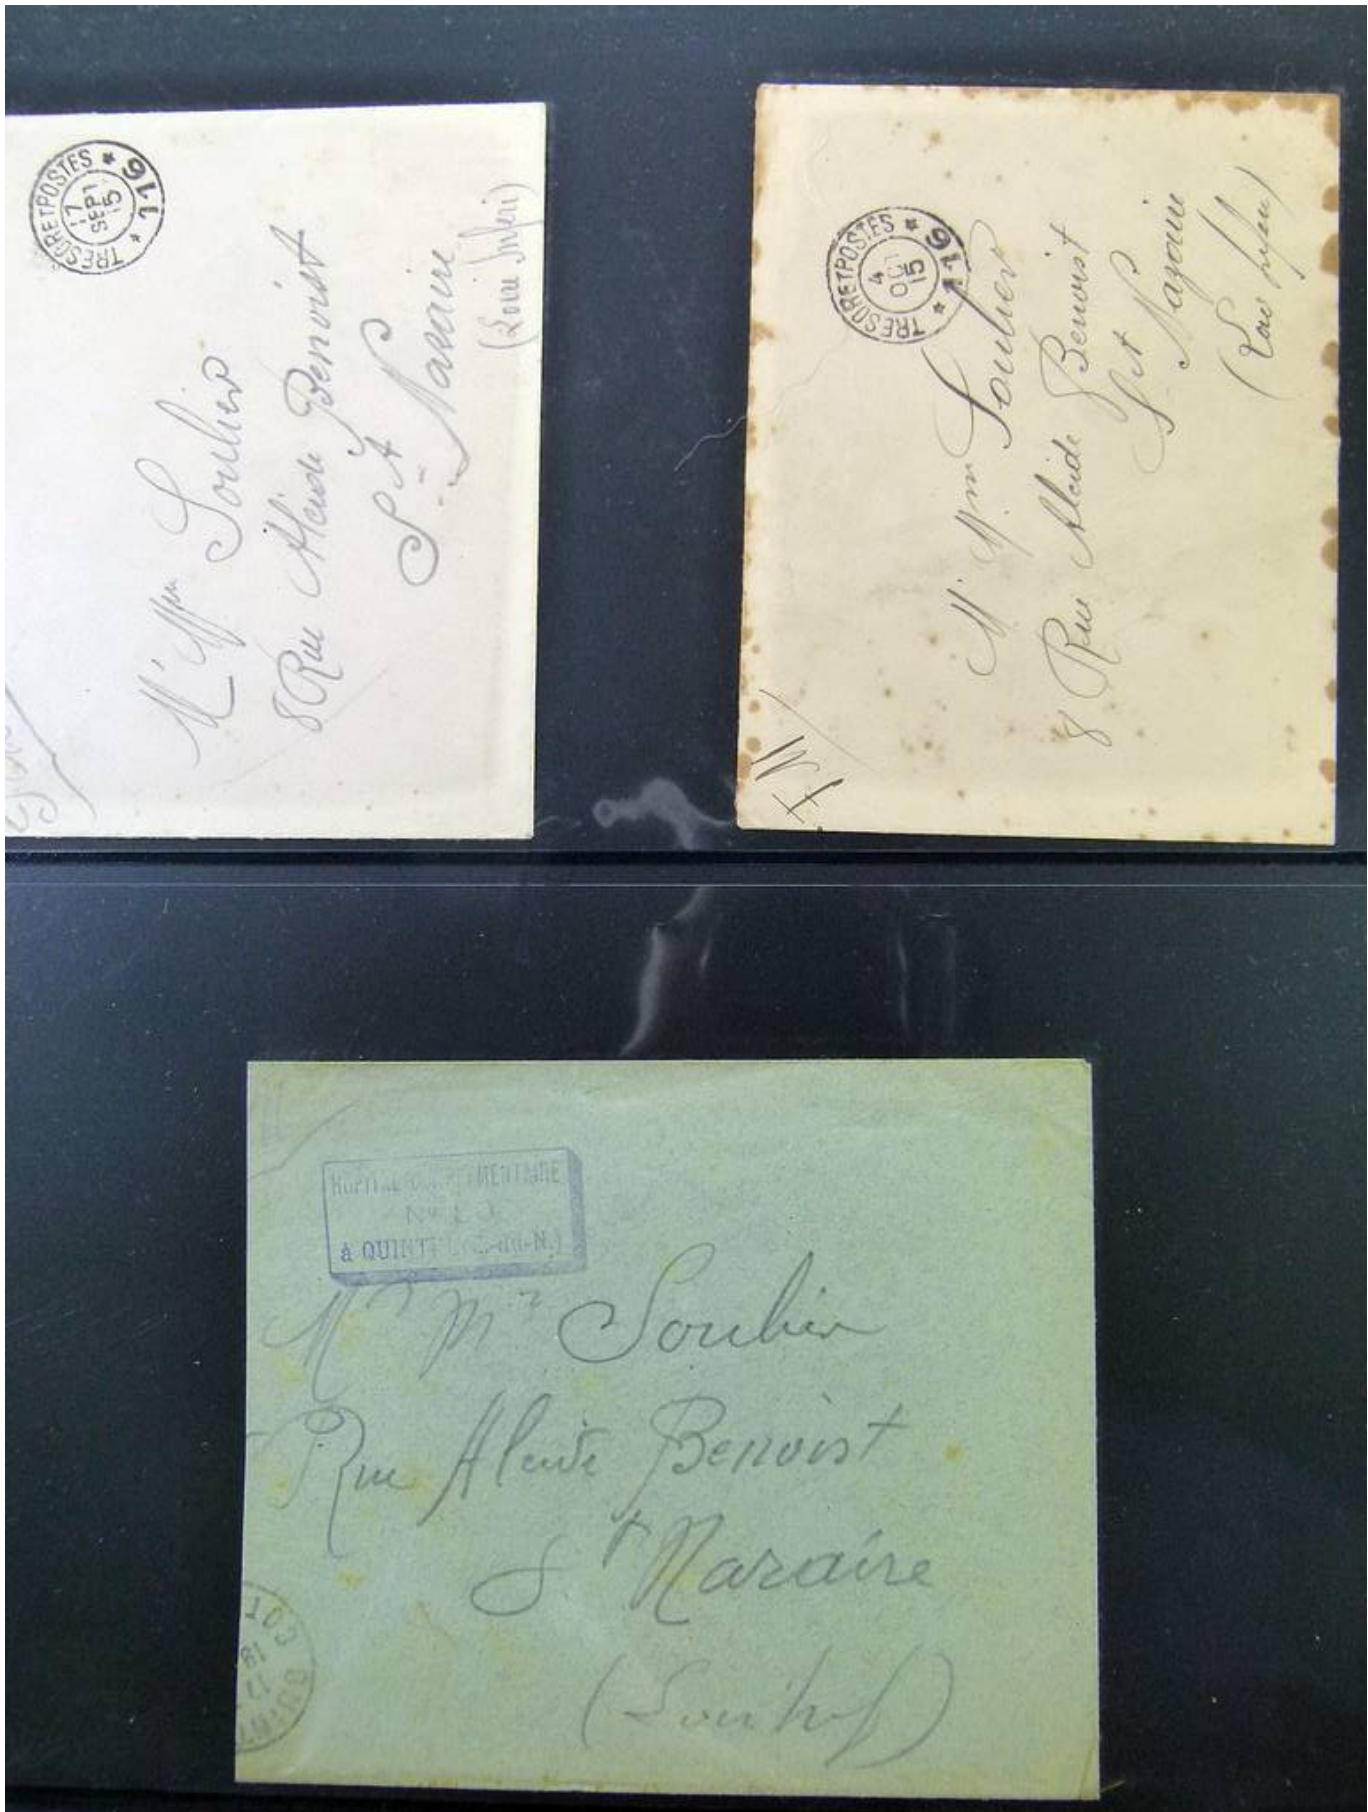 TRESOR ET POSTES
17
SEPT
15
* 116 *
Mr Mme Soulier
8 Rue Alcide Benoist
St Nazaire
(Loire Inféri)
TRESOR ET POSTES
4
OCT
15
* 116 *
FM
Mr Mme Soulier
8 Rue Alcide Benoist
St Nazaire
(Loire Infeu)
HOPITAL COMPLEMENTAIRE
No
à QUINTIN (C.-du-N.)
Mr Me Soulier
Rue Alcide Benoist
St Nazaire
(Loire Inf)